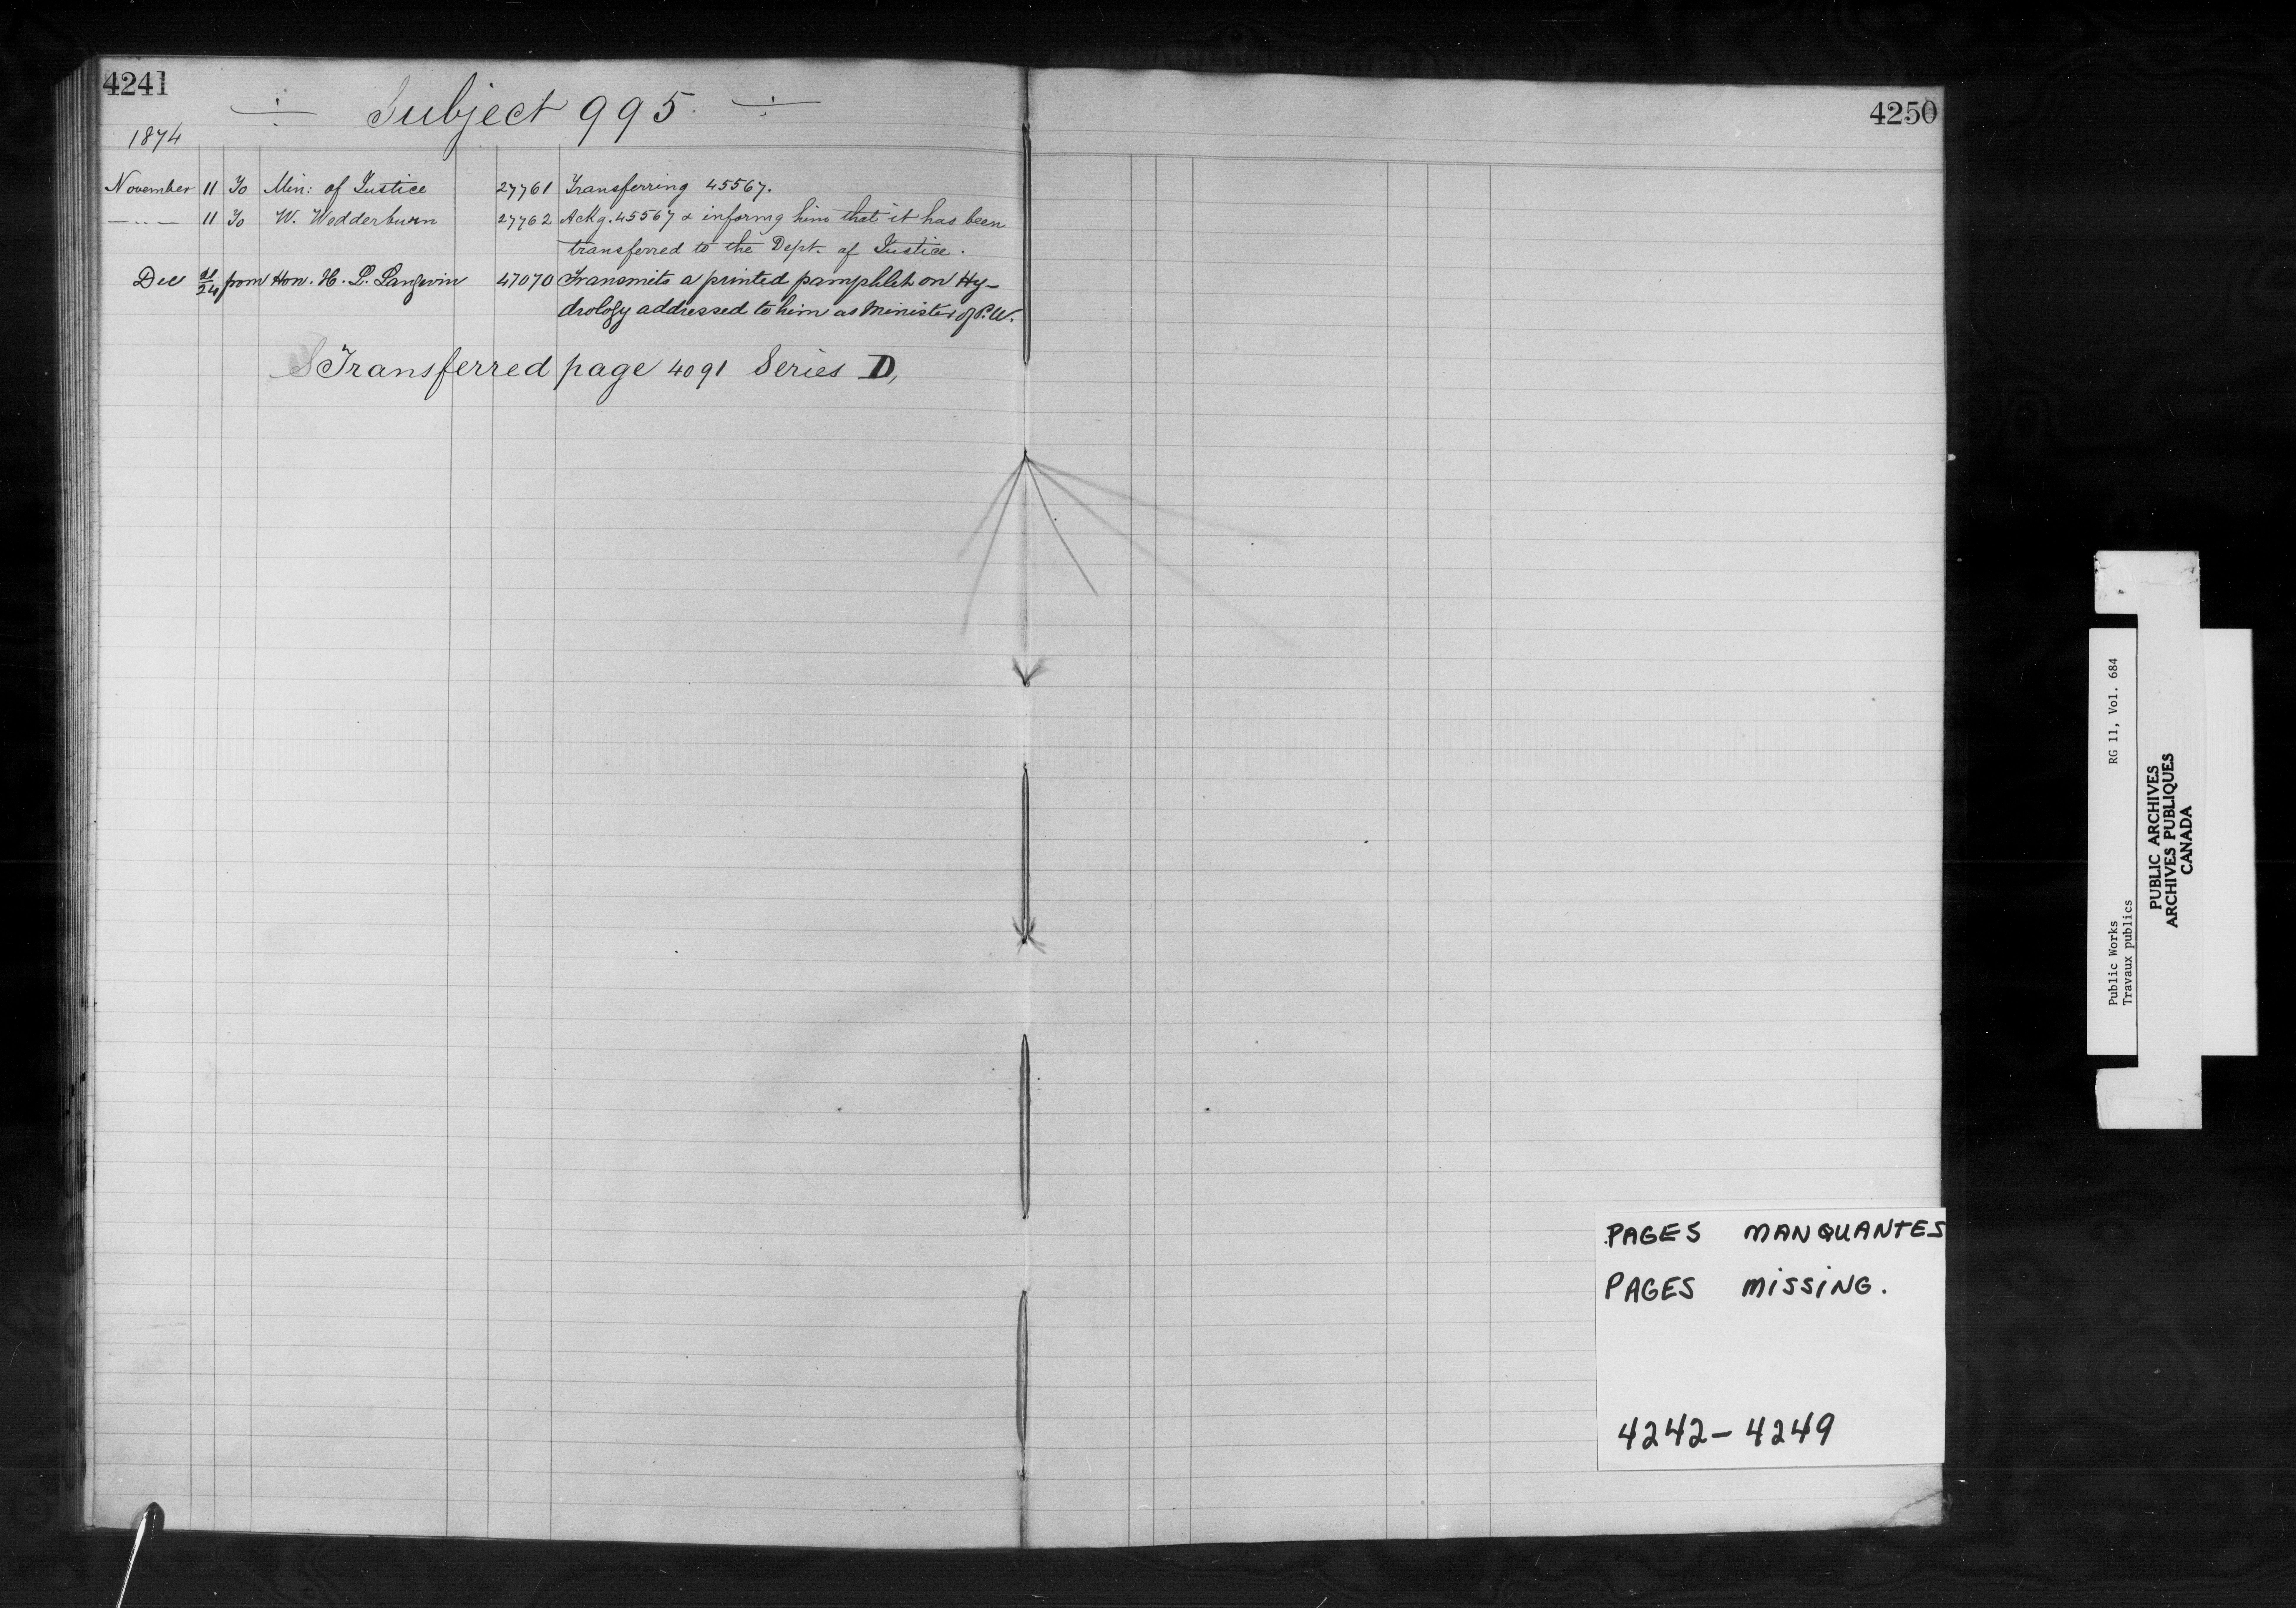 4241
Subject 995.
1874
November 11 To Min: of Justice 27761 Transferring 45567.
— " — 11 To W. Wedderburn 27762 Ackg. 45567 & informg him that it has been
transferred to the Dept. of Justice.
Dec 24 from Hon. H. L. Langevin 47070 Transmits a printed pamphlet on Hy-
drology addressed to him as Minister of P.W.
Transferred page 4091 Series D,
4250
PAGES MANQUANTES
PAGES MISSING.
4242-4249
Public Works RG 11, Vol. 684
Travaux publics
PUBLIC ARCHIVES
ARCHIVES PUBLIQUES
CANADA